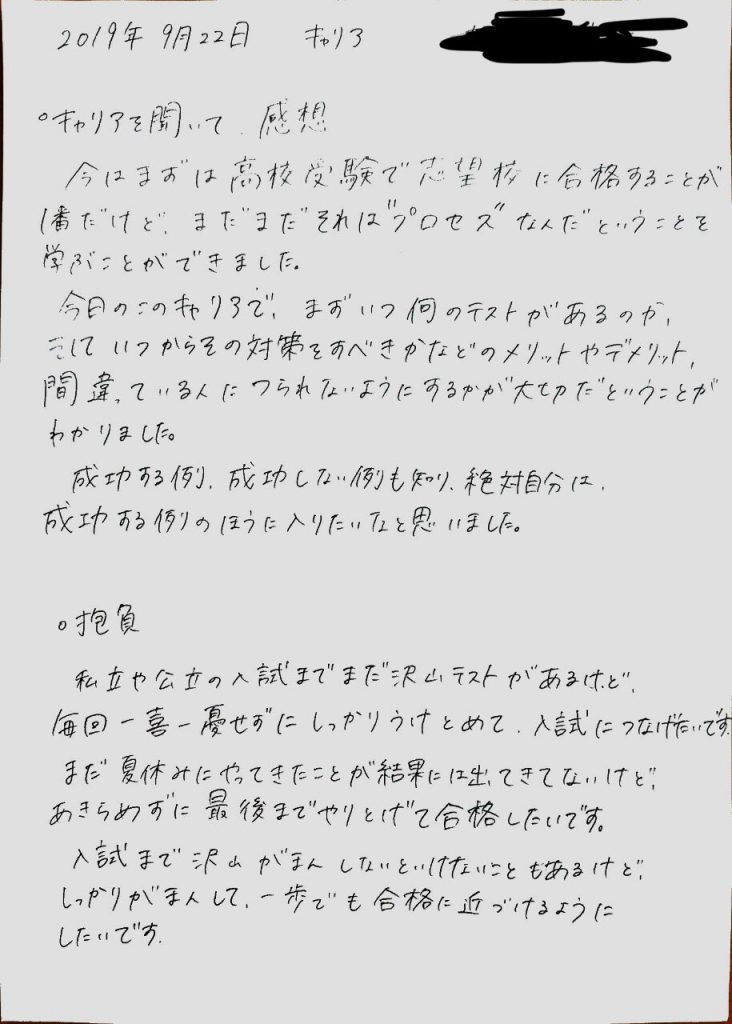 2019年 9月22日 キャリア
○キャリアを聞いて、感想
今はまずは高校受験で志望校に合格することが
1番だけど、まだまだそれは"プロセズ"なんだということを
学ぶことができました。
今日のこのキャリアで、まずいつ何のテストがあるのか、
そして いつからその対策をすべきかなどのメリットやデメリット、
間違っている人につられないようにするかが大切だということが
わかりました。
成功する例、成功しない例も知り、絶対自分は、
成功する例のほうに入りたいなと思いました。
○抱負
私立や公立の入試までまだ沢山テストがあるけど、
毎回一喜一憂せずにしっかりうけとめて、入試につなげたいです。
まだ夏休みにやってきたことが結果には出てきてないけど、
あきらめずに最後までやりとげて合格したいです。
入試まで沢山がまんしないといけないこともあるけど、
しっかりがまんして、一歩でも合格に近づけるように
したいです。